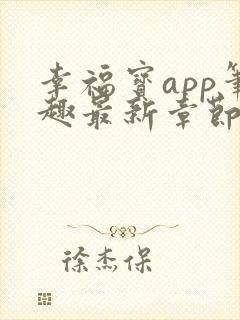 幸福宝app笔
趣最新章节
徐杰保